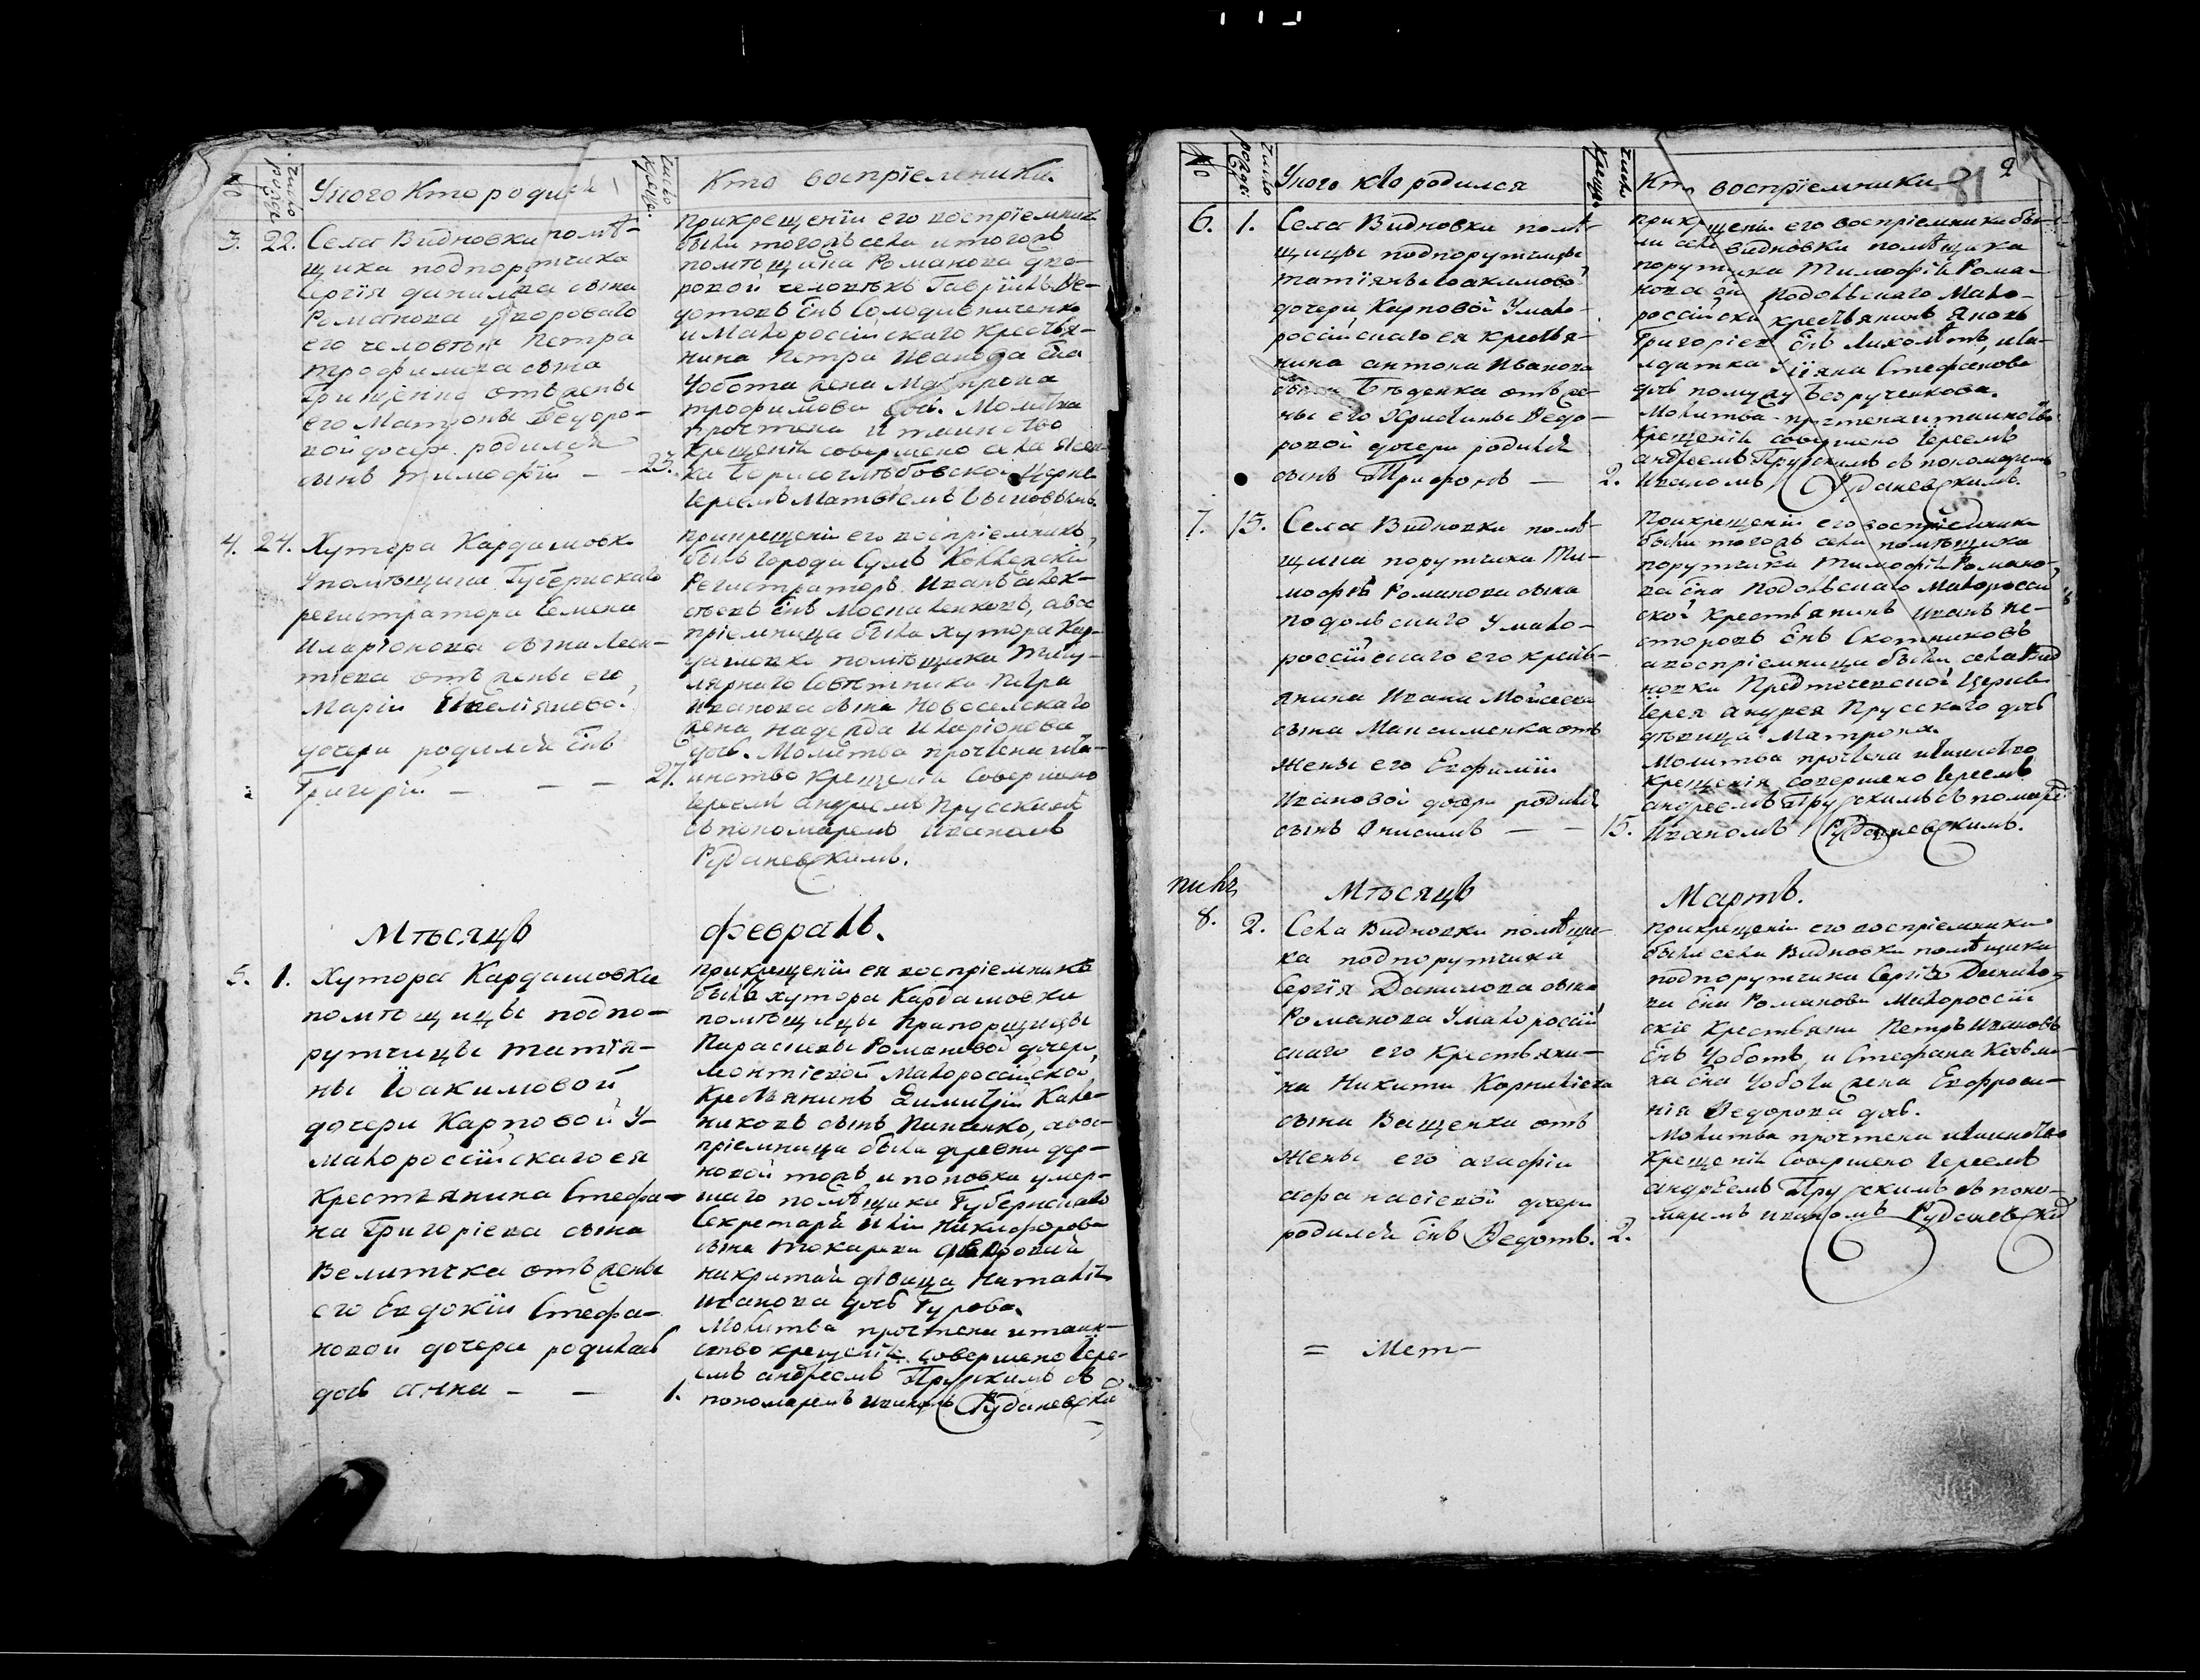 №
число рожде:
У ного Кто родился
число креще:
Кто воспріемники
3. 22.
Села Видновки помѣ-
щика подпорутчика
Сергія данилова сына
Романова дворового
его человѣка Петра
трофимова сына
Грищенка отъ жены
его Матроны Ѳедоро-
вой дочери родился
сынъ тимофій — 23.
прикрещеніи его воспріемники
были тогожъ села и тогожъ
помѣщика Романова дво-
ровой человѣкъ Гавріилъ Ѳе-
дотовъ сн҃ъ
и Малороссійскаго крестья-
нина Петра Иванова сн҃а
Чобота жена Матрона
трофимова доч. Молитва
прочтена и таинство
крещенія совершено села
Борисоглѣбовской церкви
Іереемъ Матвѣемъ
4. 24.
Хутора Кардашовки
У помѣщика Губернскаго
регистратора Семена
Иларіонова сына Леон-
тіева отъ жены его
Маріи Емеліяновой
дочери родился сн҃ъ
Григорій — — — 27.
прикрещеніи его воспріемникъ
былъ города Сумъ Коллежскій
Регистраторъ Иванъ Алек-
сѣевъ сн҃ъ Москаленковъ, а вос
пріемница была хутора Кар-
дашовки помѣщика титу-
лярнаго Совѣтника Петра
Иванова сына Новоселскаго
жена надежда Иларіонова
дочь. Молитва прочтена и та-
инство крещенія совершено
Іереемъ Андреемъ Прусскимъ
съ пономаремъ Иваномъ
Руданевскимъ.
Мѣсяцъ февраль.
5. 1.
Хутора Кардашовки
помѣщицы подпо-
рутчицы татія-
ны Іоакимовой
дочери Карповой У-
малороссійскаго ея
крестьянина Стефа-
на Григоріева сына
Велитчка отъ жены
его Евдокіи Стефа-
новой дочери родилась
дочь Анна — — 1.
прикрещеніи ея воспріемникъ
былъ хутора Кардашовки
помѣщицы прапорщицы
Параскевы Романовой дочери
леонтіевой Малороссійской
Крестьянинъ Димитрій Кале-
никовъ сынъ Панченко, а вос-
пріемница была деревни дер-
новой тожъ и поповка умер-
шаго помѣщика Губернскаго
Секретаря Иліи Никифорова
сына токарева дворовая
дѣвица Наталія
Иванова дочь Гурова.
Молитва прочтена и таин-
ство крещенія совершено Іере-
емъ Андреемъ Прусскимъ съ
пономаремъ Иваномъ Руданевски
№
число рожде:
У ного кто родился
число Креще:
Кто воспріемники
81
2
6. 1.
Села Видновки помѣ-
щицы подпорутчицы
татіяны Іоакимовой
дочери Карповой У мало-
россійскаго ея крестья-
нина антона Иванова
сына Бѣденка отъ же-
ны его Христины Ѳедо-
ровой дочери родился
сынъ Трифонъ — 2.
прикрещеніи его воспріемники бы-
ли села видновки помѣщика
порутчика Тимофѣя Рома-
нова сн҃а Подольскаго Мало-
россійскій крестьянинъ Яковъ
Григоріевъ сн҃ъ
Стефанова
дочь
Молитва прочтена и таинство
крещенія совершено Іереемъ
андреемъ Прусскимъ съ пономаремъ
Иваномъ Руданевскимъ.
7. 15.
Села Видновки помѣ-
щика порутчика Ти-
мофѣя Романова сына
подольскаго У мало-
россійскаго его кресть-
янина Ивана Мойсеева
сына Максименка отъ
жены его Евфиміи
Ивановой дочери родился
сынъ Онисимъ — — 15.
Прикрещеніи его воспріемники
были тогожъ села помѣщика
порутчика Тимофѣя Романо-
ва сн҃а Подольскаго Малоросси
ской крестьянинъ Иванъ не-
сторовъ сн҃ъ Скотниковъ
а воспріемница была села Вид
новки Предтечевской Церкви
Іерея андрея Прусскаго дочь
дѣвица Матрона.
Молитва прочтена и таинство
крещенія совершено Іереемъ
андреемъ Прусскимъ съ пономаре
Иваномъ Руданевскимъ.
Мѣсяцъ Мартъ.
8. 2.
Села Видновки помѣщи-
ка подпорутчика
Сергія Данилова сына
Романова У малороссій
скаго его крестьяни-
на Никиты Корнилiева
сына Ващенка отъ
жены его агафіи
афанасіевой дочери
родился сн҃ъ Ѳедотъ. 2.
прикрещеніи его воспріемники
были села Видновки помѣщика
подпорутчика Сергія Данило-
ва сн҃а Романова Малороссій
скіе крестьяне Петръ Ивановъ
сн҃ъ Чоботъ, и Стефана Козьми-
на сн҃а Чобота жена Евфроси-
нія Ѳедорова дочь.
Молитва прочтена и таинство
Крещенія Совершено Іереемъ
андреемъ Прусскимъ съ поно-
маремъ иваномъ Руданевски
= Мет-